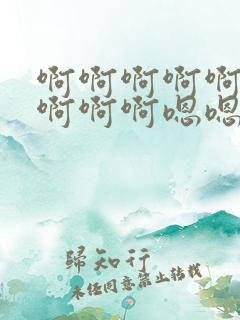 啊啊啊啊啊
啊啊啊嗯嗯
归知行
未经同意禁止转载